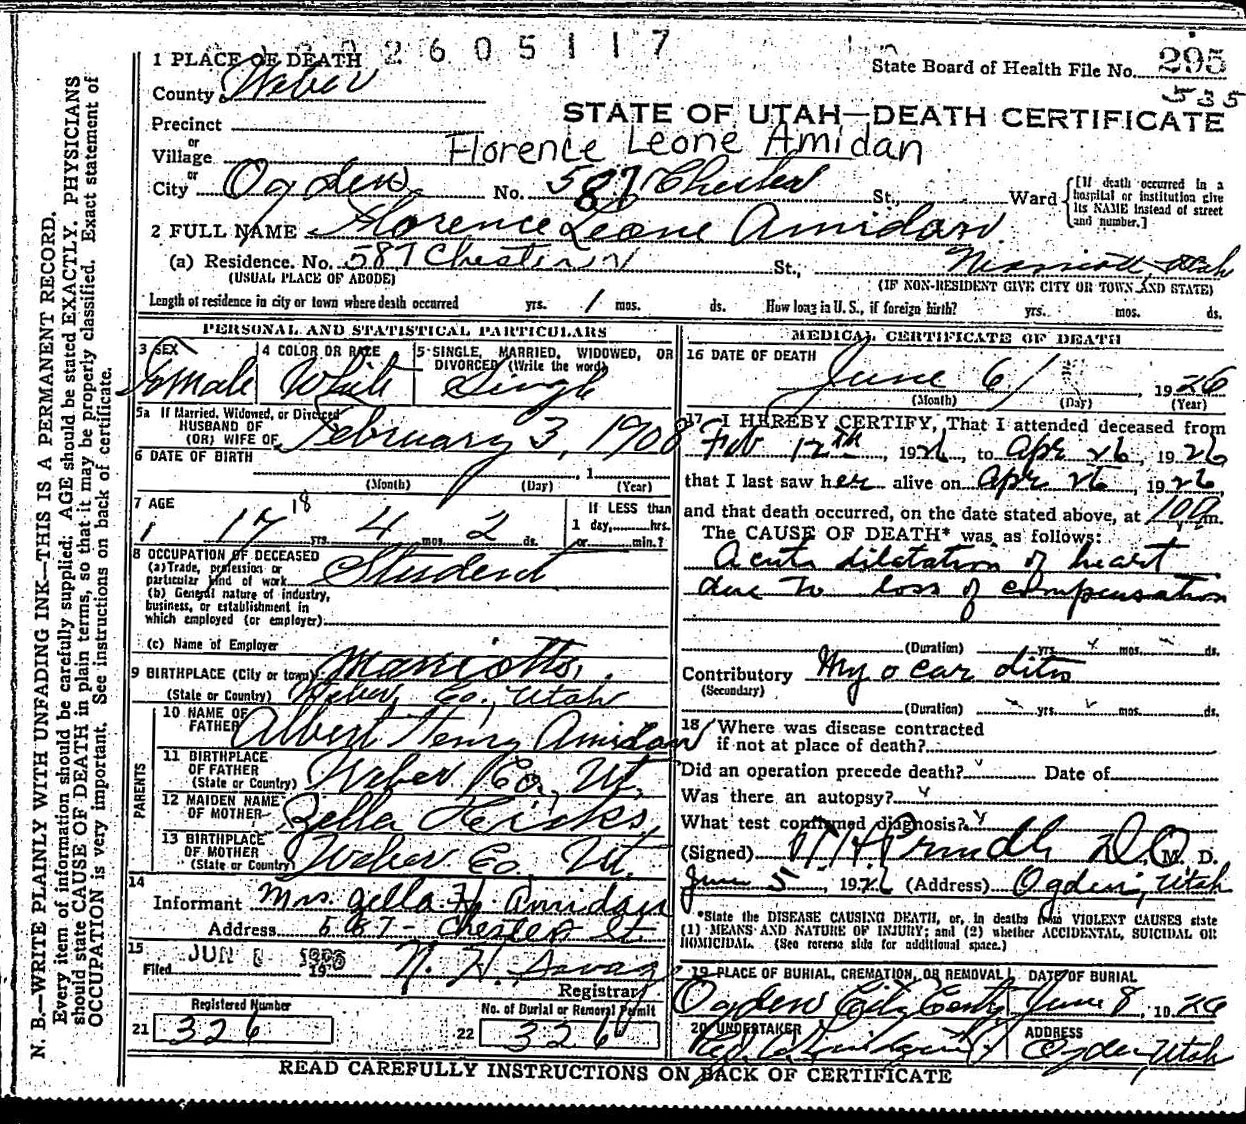 2 6 0 5 1 1 7
1 PLACE OF DEATH
State Board of Health File No. 295
535
County Weber
STATE OF UTAH—DEATH CERTIFICATE
Precinct
or
Village
Florence Leone Amidan
or
City Ogden No. 587 Chester St., Ward
[If death occurred in a hospital or institution give its NAME instead of street and number.]
2 FULL NAME Florence Leone Amidan
(a) Residence. No. 587 Chester St., Utah
(USUAL PLACE OF ABODE) (IF NON-RESIDENT GIVE CITY OR TOWN AND STATE)
Length of residence in city or town where death occurred yrs. 1 mos. ds. How long in U.S., if foreign birth? yrs. mos. ds.
PERSONAL AND STATISTICAL PARTICULARS
3 SEX Female
4 COLOR OR RACE White
5 SINGLE, MARRIED, WIDOWED, OR DIVORCED (Write the word) Single
5a If Married, Widowed, or Divorced
HUSBAND OF
(OR) WIFE OF
February 3, 1908
6 DATE OF BIRTH
, 1
(Month) (Day) (Year)
7 AGE
18
17 yrs. 4 mos. 2 ds.
If LESS than
1 day, hrs.
or min.?
8 OCCUPATION OF DECEASED
(a) Trade, profession or
particular kind of work Student
(b) General nature of industry,
business, or establishment in
which employed (or employer)
(c) Name of Employer
9 BIRTHPLACE (City or town) Marriotts,
(State or Country) Weber Co., Utah
PARENTS
10 NAME OF FATHER Albert Henry Amidan
11 BIRTHPLACE OF FATHER (State or Country) Weber Co., Ut.
12 MAIDEN NAME OF MOTHER Zella Hicks
13 BIRTHPLACE OF MOTHER (State or Country) Weber Co. Ut.
14
Informant Mrs. Zella H. Amidan
Address 587 - Chester St.
15
Filed JUN 1926 N. H. Savage
Registrar
Registered Number
21 326
No. of Burial or Removal Permit
22 326
MEDICAL CERTIFICATE OF DEATH
16 DATE OF DEATH
June 6 1926
(Month) (Day) (Year)
17 I HEREBY CERTIFY, That I attended deceased from
Feb 12th, 1926, to Apr 26, 1926
that I last saw her alive on Apr 26, 1926,
and that death occurred, on the date stated above, at m.
The CAUSE OF DEATH* was as follows:
Acute dilatation of heart
due to loss of compensation
(Duration) yrs. mos. ds.
Contributory Myocarditis
(Secondary)
(Duration) yrs. mos. ds.
18 Where was disease contracted
if not at place of death?
Did an operation precede death? Date of
Was there an autopsy?
What test confirmed diagnosis?
(Signed) D.O., M. D.
June, 192 (Address) Ogden, Utah
*State the DISEASE CAUSING DEATH, or, in deaths from VIOLENT CAUSES state
(1) MEANS AND NATURE OF INJURY; and (2) whether ACCIDENTAL, SUICIDAL OR
HOMICIDAL. (See reverse side for additional space.)
19 PLACE OF BURIAL, CREMATION, OR REMOVAL DATE OF BURIAL
Ogden City June 8, 1926
20 UNDERTAKER ADDRESS
Ogden, Utah
READ CAREFULLY INSTRUCTIONS ON BACK OF CERTIFICATE
N. B.—WRITE PLAINLY WITH UNFADING INK—THIS IS A PERMANENT RECORD.
Every item of information should be carefully supplied. AGE should be stated EXACTLY. PHYSICIANS
should state CAUSE OF DEATH in plain terms, so that it may be properly classified. Exact statement of
OCCUPATION is very important. See instructions on back of certificate.